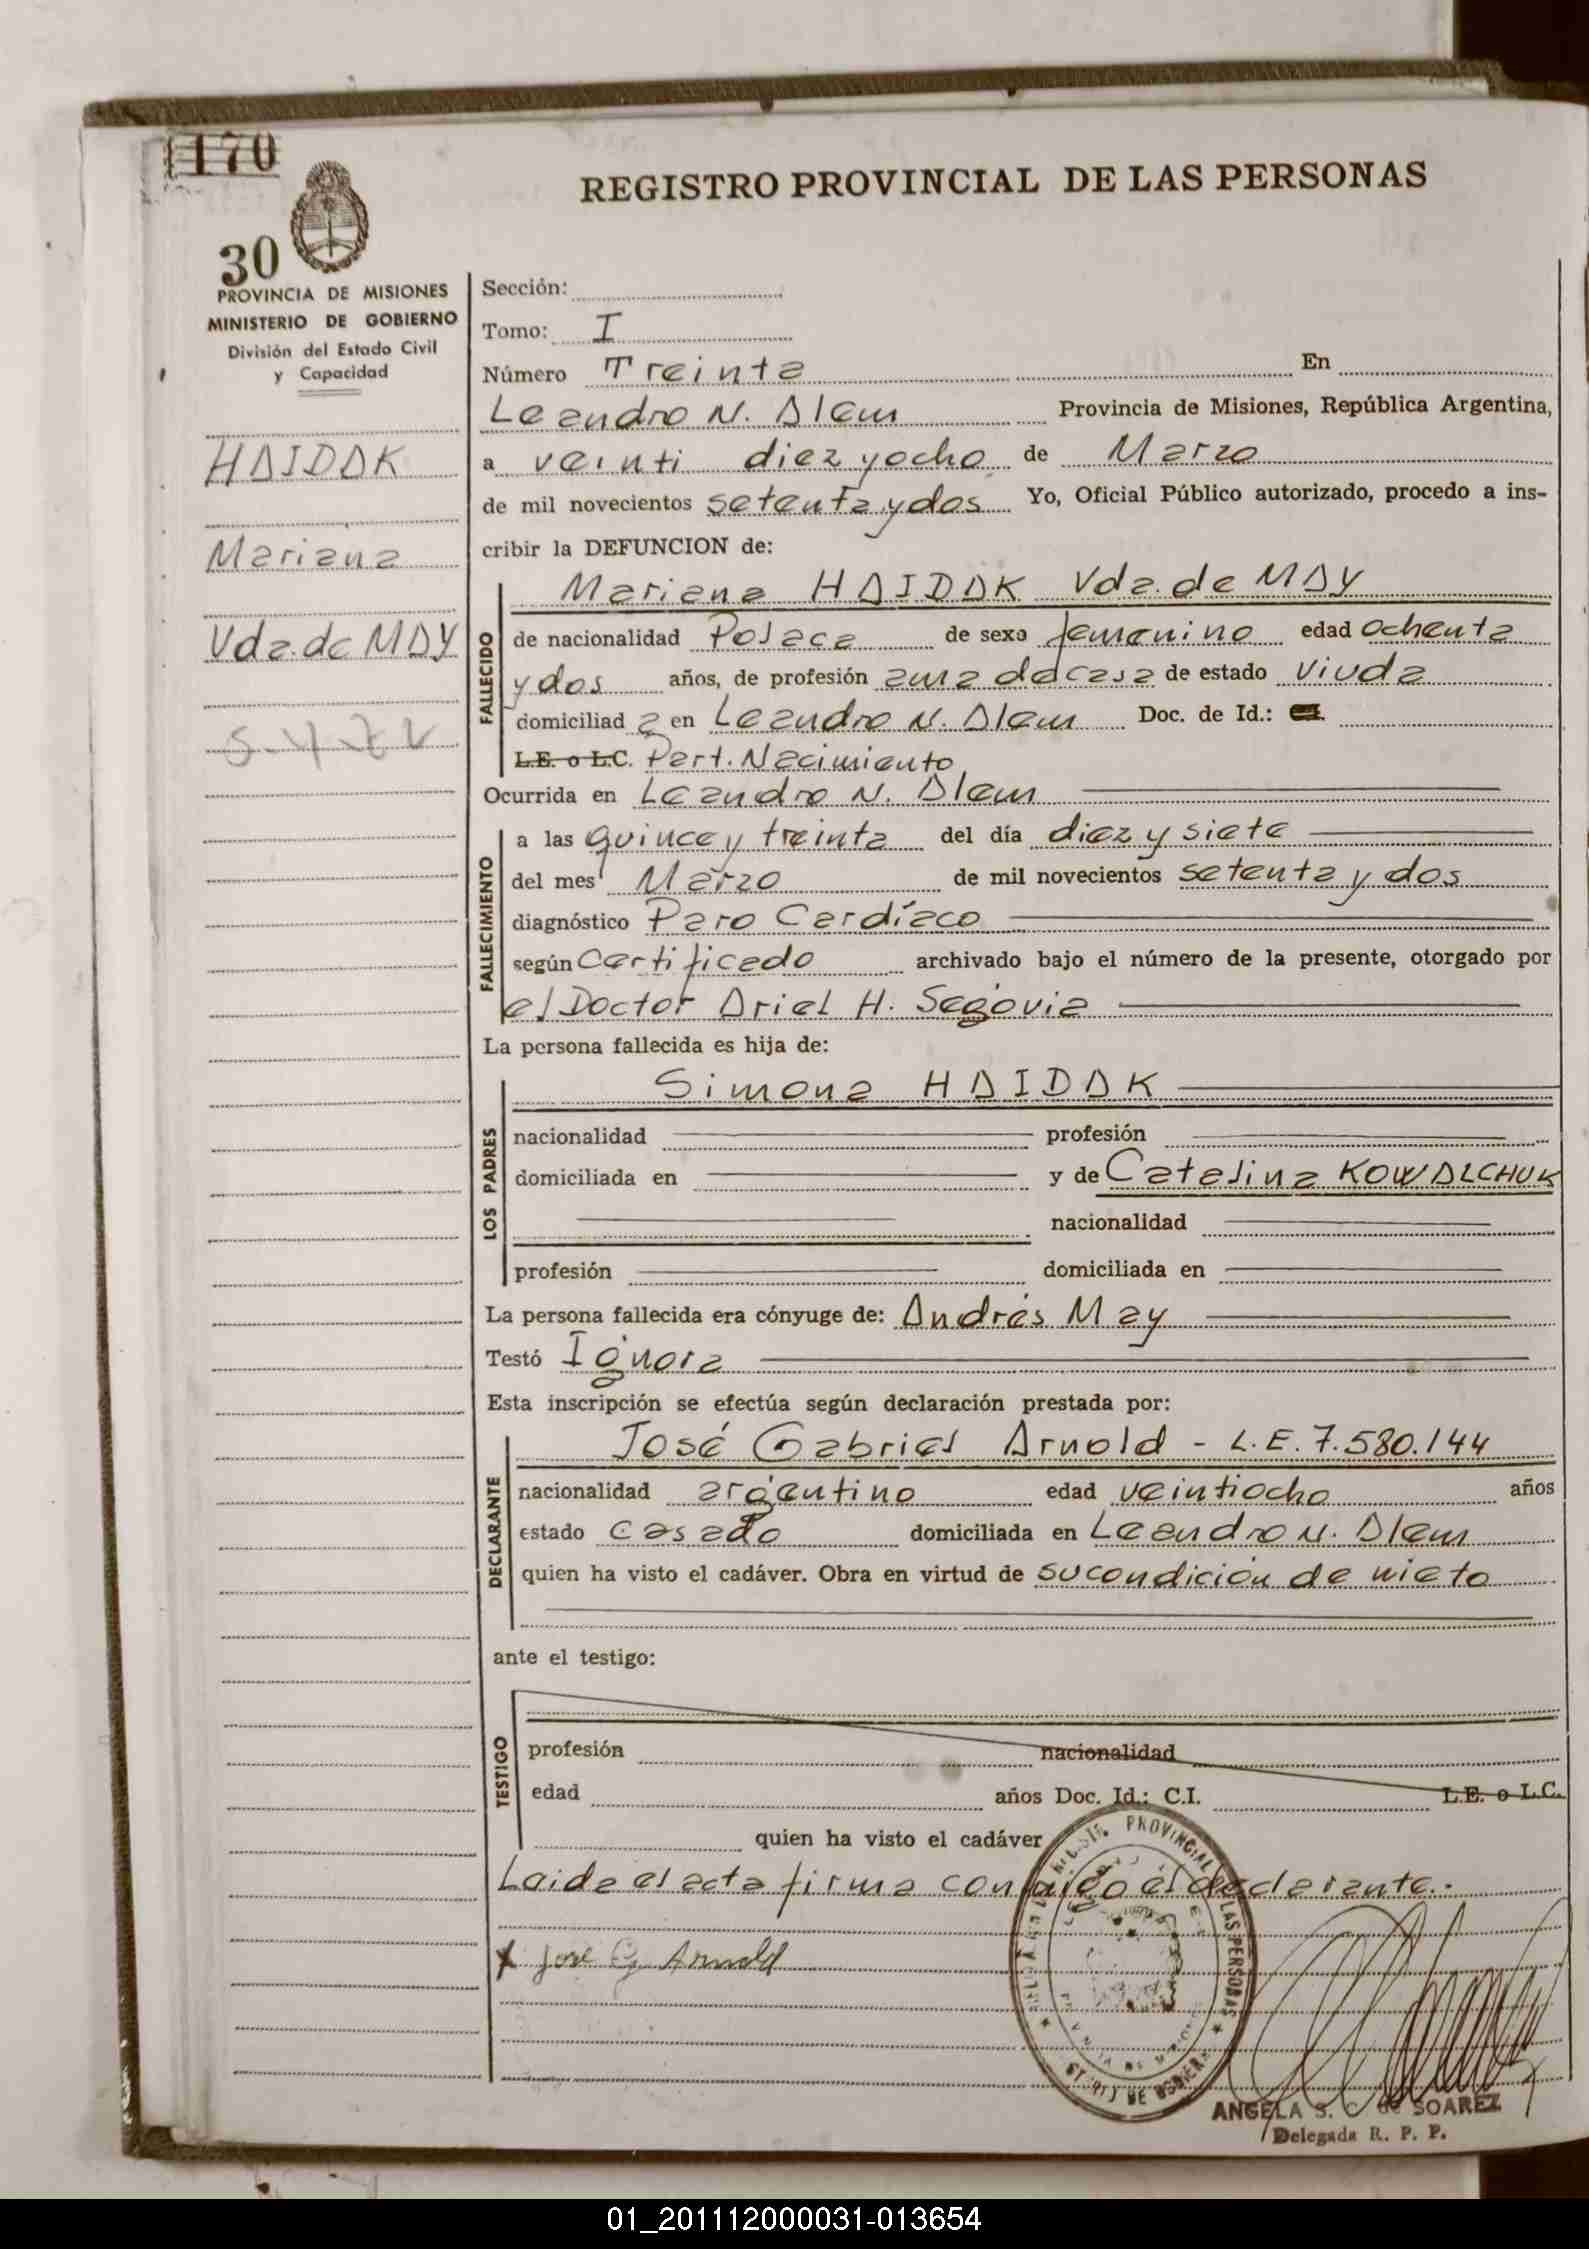 170
REGISTRO PROVINCIAL DE LAS PERSONAS
30
PROVINCIA DE MISIONES
MINISTERIO DE GOBIERNO
División del Estado Civil
y Capacidad
HAIDAK
Mariana
Vda. de MAY
Sección:
Tomo: I
Número Treinta En
Leandro N. Alem Provincia de Misiones, República Argentina,
a veinti diez y ocho de Marzo
de mil novecientos setenta y dos Yo, Oficial Público autorizado, procedo a ins-
cribir la DEFUNCION de:
Mariana HAIDAK Vda. de MAY
FALLECIDO
de nacionalidad Polaca de sexo femenino edad ochenta
y dos años, de profesión ama de casa de estado viuda
domiciliad a en Leandro N. Alem Doc. de Id.:
L.E. o L.C. Part. Nacimiento
Ocurrida en Leandro N. Alem
FALLECIMIENTO
a las quince y treinta del día diez y siete
del mes Marzo de mil novecientos setenta y dos
diagnóstico Paro Cardíaco
según Certificado archivado bajo el número de la presente, otorgado por
el Doctor Ariel H. Segovia
La persona fallecida es hija de:
LOS PADRES
Simona HAIDAK
nacionalidad profesión
domiciliada en y de Catalina KOWALCHUK
nacionalidad
profesión domiciliada en
La persona fallecida era cónyuge de: Andrés May
Testó Ignora
Esta inscripción se efectúa según declaración prestada por:
DECLARANTE
José Gabriel Arnold - L.E. 7.580.144
nacionalidad argentino edad veintiocho años
estado casado domiciliada en Leandro N. Alem
quien ha visto el cadáver. Obra en virtud de su condición de nieto
ante el testigo:
TESTIGO
profesión nacionalidad
edad años Doc. Id.: C.I. L.E. o L.C.
quien ha visto el cadáver
Leida el acta firma conmigo el declarante.
x José G Arnold
PROVINCIAL LAS PERSONAS
ANGELA S. C de SOAREZ
Delegada R. P. P.
01_201112000031-013654